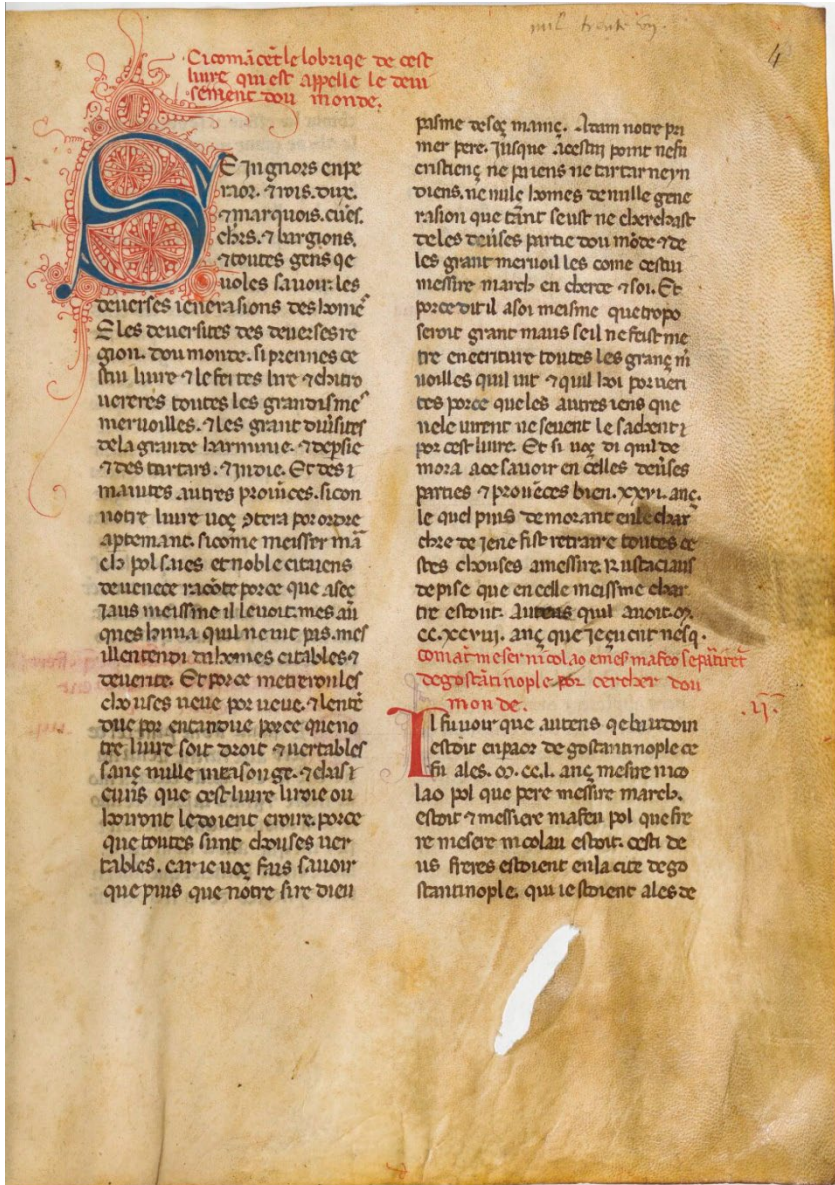 4
Ci comācēt le lobrique de cest
liure qui est appelle le deui
sement dou monde.
SEingnors enpe
raor. ⁊ rois. dux.
⁊ marquois. cuēs.
chrs. ⁊ bargions.
⁊ toutes gens qe
uoles sauoir. les
deuerses ienerasions des home͛
E les deuersites des deuerses re
gion. dou monde. si prennes ce
stui liure ⁊ le feites lire ⁊ chitro
uereres toutes les grandisme͛
meruoilles. ⁊ les grant diu͛sites
de la grande harminie. ⁊ depsie
⁊ des tartars. ⁊ indie. Et des ⁊
maintes autres prouīces. sicon
notre liure uoç ɔtera por ordre
apertemant. sicome meisser mā
ch pol saies et noble citaiens
de uenece racōte porce que a seç
iaus meissme il le uoit. mes au̅
ques hi nia qui̅l ne uit pas. mes
il lentendi da homes citables ⁊
deuerité. Et por ce metreron les
chouses ueue por ueue. ⁊ lente̅
due por entandue porce que no
tre liure soit droit ⁊ uertables
sanç nulle mansonge. ⁊ chasi
cuns que cest liure liroie ou
hoiront le doient croire. porce
que toutes sunt chouses uer
tables. car ie uoç fais sauoir
que pius que notre sire dieu
pasme de seç mainç. Adam notre pri
mer pere. Jusque a cestui point ne fu
cristienç ne paiens ne tartar ne yn
diens. ne nulle homes de nulle gene
rasion que tant seust ne cherchast
de les deu͛ses partie dou mōde ⁊ de
les grant meruoilles come cestui
messire march en cherce ⁊ soi. Et
porce dit il a soi meisme que tropo
seroit grant maus se il ne feist me
tre en ecriture toutes les granç m͛
uoilles quil uit ⁊ quil hoi por ueri
tes porce que les autres iens que
ne le uirent ne seuent le sachent ⁊
por cest liure. Et si uoç di quil de
mora a ce sauoir en celles deu͛ses
parties ⁊ prouēces bien. xxvi. anç.
le quel puis demorant en le char
chre de iene fist retraire toutes ce
stes chouses a messire rustaciaus
de pise que en celle meissme char
tre estoit. Au tens quil auoit. ꝏ.
cc. xcviii. anç que ieçucrit nesq.
com at meser nicolao e mes͛ mafeo se pātiret
de gostātinople por cercher dou
mon de. .ij.
Il fu uoir que au tens qe baudoin
estoit enpaor de gostantinople ce
fu ales. ꝏ. cc. l. anç mesire nico
lao pol que pere messire march.
estoit ⁊ messiere mafeu pol que fre
re mesere nicolau estoit. cesti de
us freres estoient en la cite de go
stantinople. qui ie stoient ales de